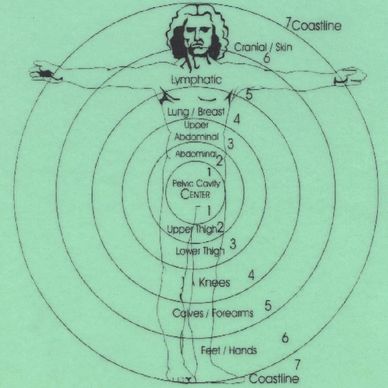 7 Coastline
Cranial / Skin
6
Lymphatic
5
Lung / Breast
4
Upper
Abdominal
3
Abdominal
2
1
Pelvic Cavity
CENTER
1
Upper Thigh 2
Lower Thigh 3
Knees 4
5
Calves / Forearms
6
Feet / Hands
7
Coastline